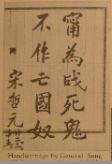 甯為战死鬼
不作亡國奴
宋哲元
Handwritings by General Sung